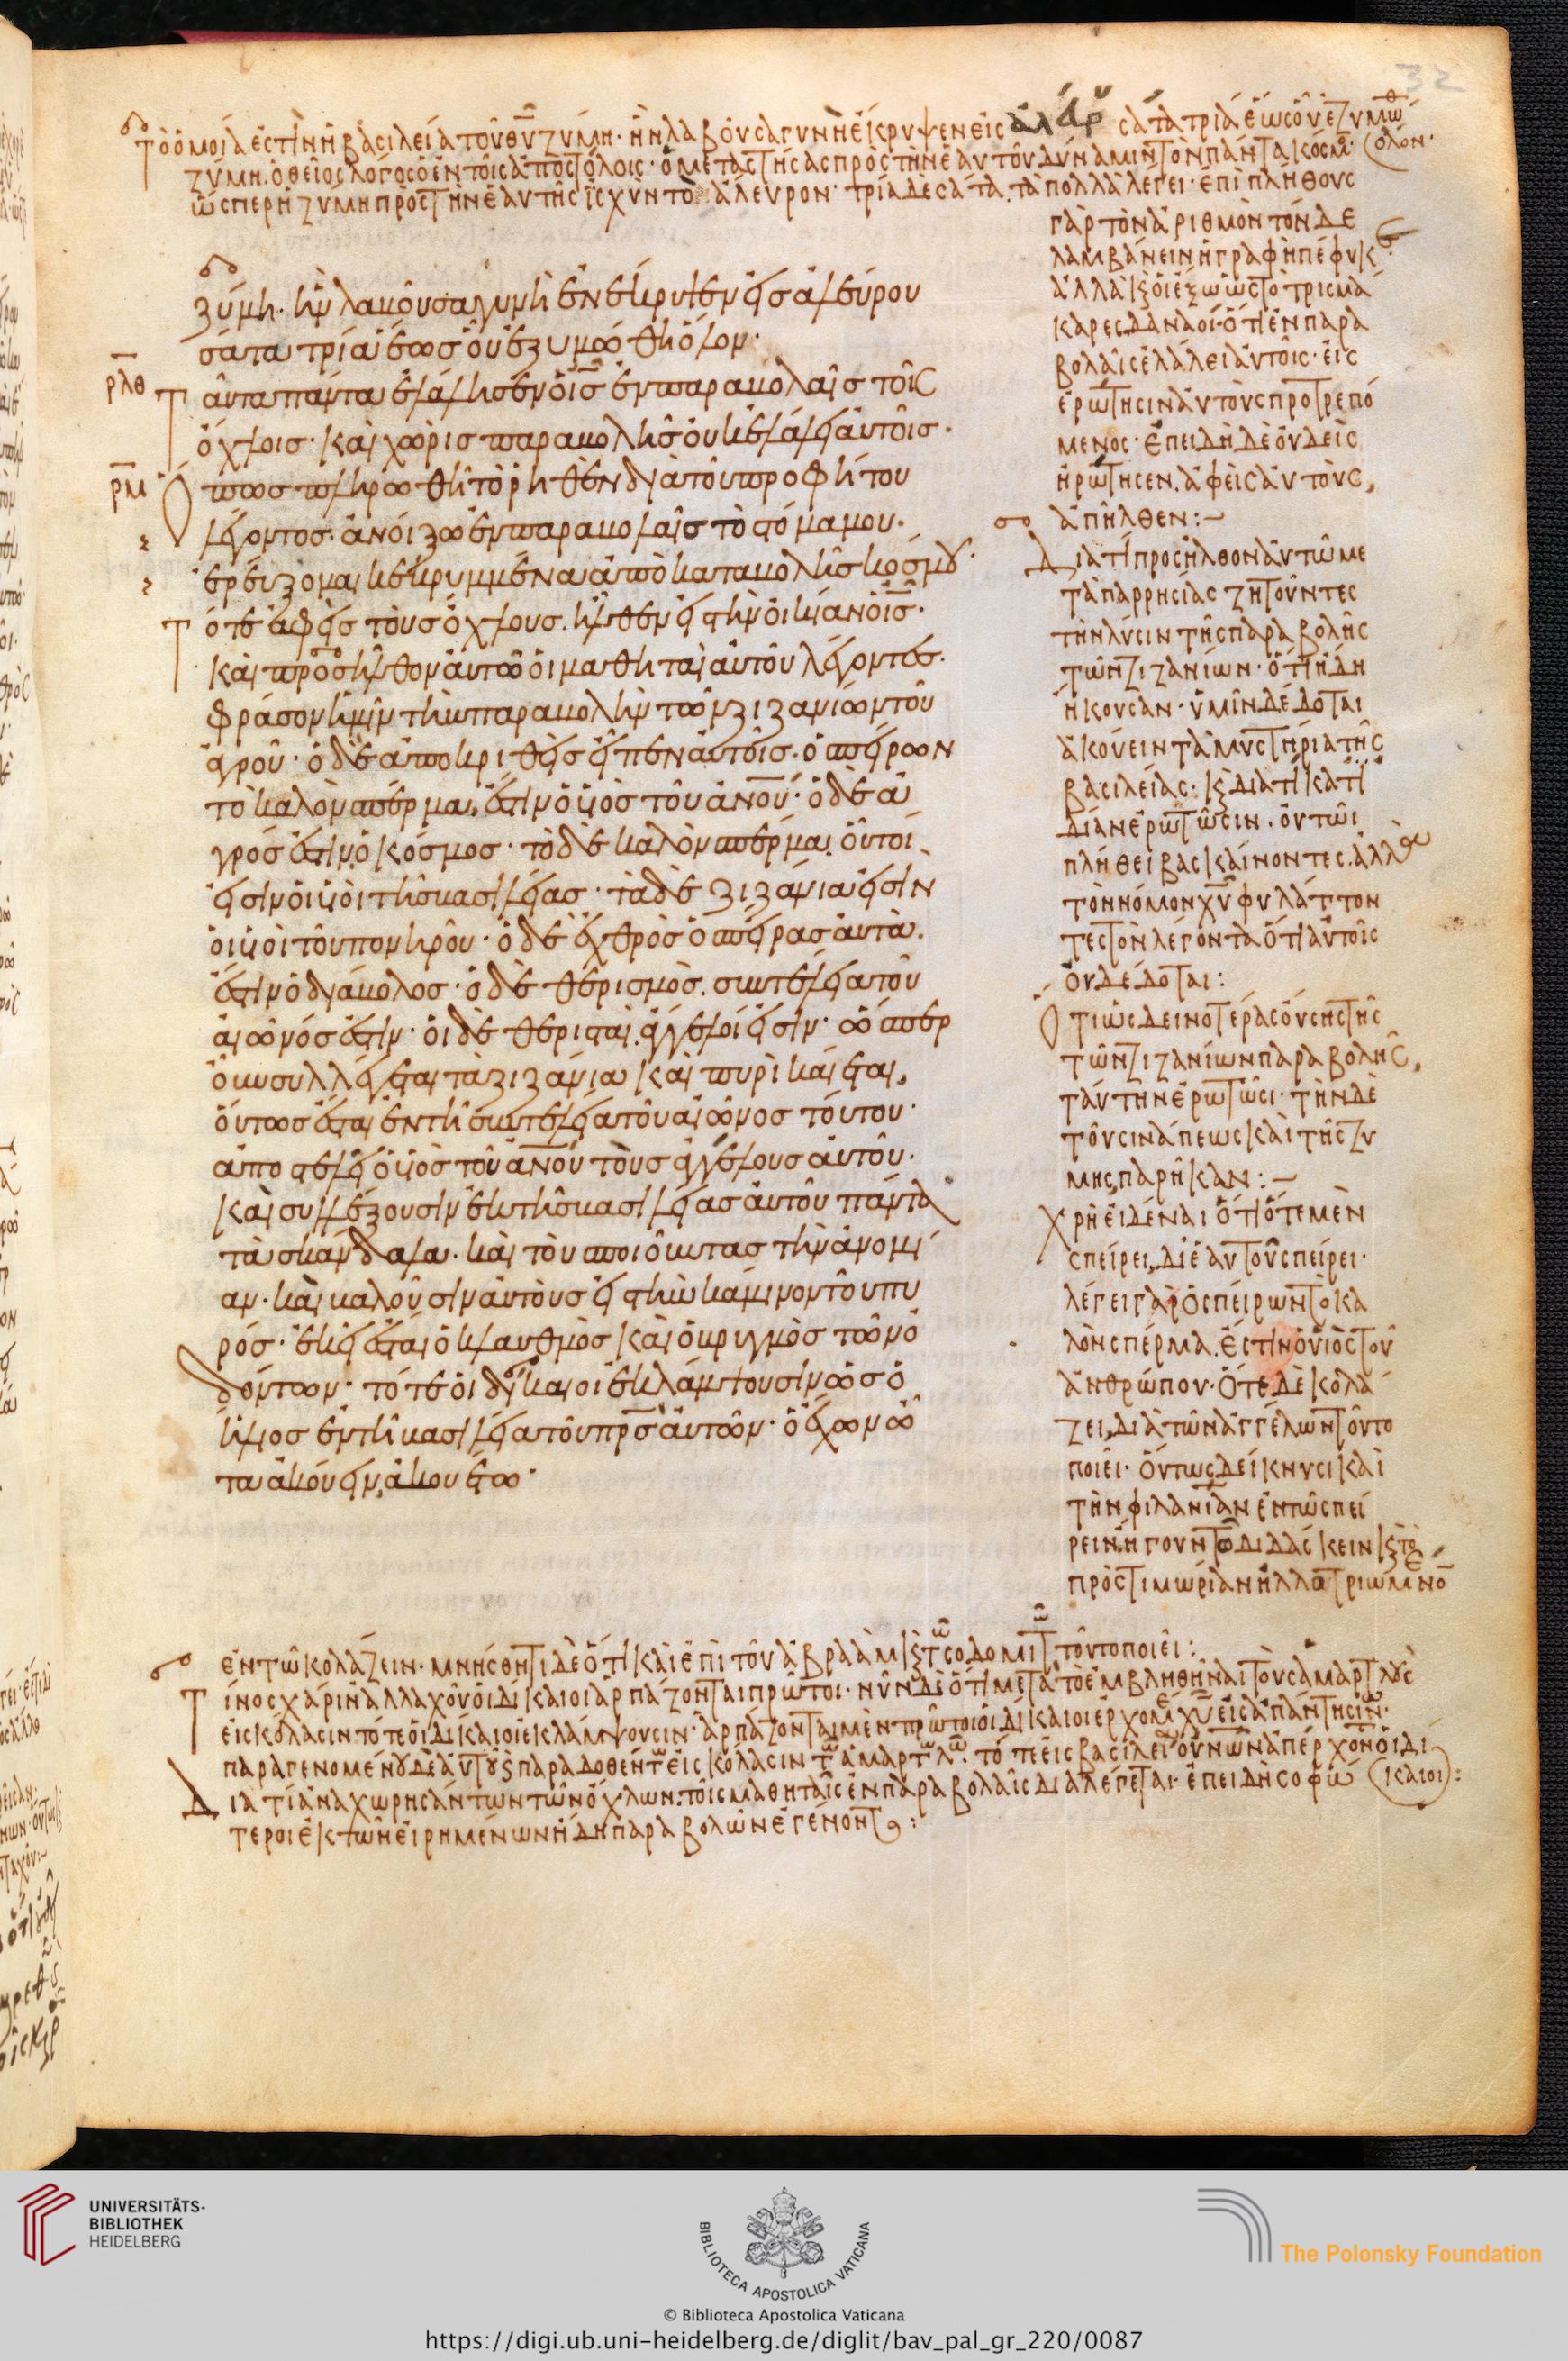 32
Τὸ ὁμοία ἐστὶν ἡ βασιλεία τοῦ θυ ζύμη· ἣν λαβοῦσα γυνὴ ἔκρυψεν εἰς ἀλάρυ σάτα τρία ἕως οὗ ἐζυμώθ
ζύμη. ὁ θεῖος λόγος ὁ ἐν τοῖς ἀποστόλοις· ὁ μεταστήσας πρὸς τὴν ἑαυτοῦ δύναμιν τὸν πάντα κόσμ (ὅλον·
ὥσπερ ἡ ζύμη πρὸς τὴν ἑαυτῆς ἰσχὺν τὸ ἄλευρον· τρία δὲ σάτα. τὰ πολλὰ λέγει· ἐπὶ πλήθους
γὰρ τὸν ἀριθμὸν τόνδε
λαμβάνειν ἡ γραφὴ πέφυκε·
ἀλλὰ κ οἱ ἔξω ὡς τὸ τρισμά
καρες δαναοί· ὅτι ἐν παρα
βολαῖς ἐλάλει αὐτοῖς· εἰς
ἐρώτησιν αὐτοὺς προτρεπό
μενος· ἐπειδὴ δὲ οὐδεὶς
ἠρώτησεν. ἀφεὶς αὐτοὺς,
ἀπῆλθεν:–
Διατί προσῆλθον αὐτῶ με
τὰ παρρησίας ζητοῦντες
τὴν λύσιν τῆς παραβολῆς
τῶν ζιζανίων· ὅτι ἤδη
ἤκουσαν· ὑμῖν δέδοται
ἀκούειν τὰ μυστήρια τῆς
βασιλείας· κ διατί κατ ἰ
δίαν ἐρωτῶσιν. οὐ τῶι
πλήθει βασκαίνοντες. ἀλλὰ
τὸν νόμον χυ φυλάττον
τες τὸν λέγοντα ὅτι αὐτοῖς
οὐ δέδοται:
Ὅτι ὡς δεινοτέρας οὔσης τῆς
τῶν ζιζανίων παραβολῆς,
ταύτην ἐρωτῶσι· τὴν δὲ
τοῦ σινάπεως καὶ τῆς ζύ
μης, παρῆκαν:–
Χρὴ εἰδέναι ὅτι ὅτε μὲν
σπείρει, δι ἑαυτοῦ σπείρει·
λέγει γὰρ ὁ σπείρων τὸ κα
λὸν σπέρμα. ἐστὶν ὁ υἱὸς τοῦ
ἀνθρώπου· ὅτε δὲ κολά
ζει, διὰ τῶν ἀγγέλων τοῦτο
ποιεῖ· οὕτως δείκνυσι καὶ
τὴν φιλανίαν ἐν τῶ σπεί
ρειν. ἤγουν τῶ διδάσκειν κ τὸ
πρὸς τιμωρίαν ἠλλοτριωμένο
ζύμη· ἣν λαβοῦσα γυνὴ ἐνέκρυψεν εἰς ἀλεύρου
σάτα τρία ἕως οὗ ἐζυμώθη ὅλον·
ρλθ Ταῦτα πάντα ἐλάλησεν ὁ ις ἐν παραβολαῖς τοῖς
ὄχλοις· καὶ χωρὶς παραβολῆς οὐκ ἐλάλει αὐτοῖς·
ρμ Ὅπως πληρωθῆ τὸ ῥηθὲν διὰ τοῦ προφήτου
λέγοντος· ἀνοίξω ἐν παραβολαῖς τὸ στόμα μου·
ἐρεύξομαι κεκρυμμένα ἀπὸ καταβολῆς κόσμου·
Τότε ἀφεὶς τοὺς ὄχλους. ἦλθεν εἰς τὴν οἰκίαν ὁ ις·
καὶ προσῆλθον αὐτῶ οἱ μαθηταὶ αὐτοῦ λέγοντες·
φράσον ἡμῖν τὴν παραβολὴν τῶν ζιζανίων τοῦ
ἀγροῦ· ὁ δὲ ἀποκριθεὶς εἶπεν αὐτοῖς· ὁ σπείρων
τὸ καλὸν σπέρμα, ἐστὶν ὁ υἱὸς τοῦ ανου· ὁ δὲ ἀ
γρός ἐστιν ὁ κόσμος· τὸ δὲ καλὸν σπέρμα. οὗτοί
εἰσιν οἱ υἱοὶ τῆς βασιλείας· τὰ δὲ ζιζάνια εἰσὶν
οἱ υἱοὶ τοῦ πονηροῦ· ὁ δὲ ἐχθρὸς ὁ σπείρας αὐτὰ.
ἐστὶν ὁ διάβολος· ὁ δὲ θερισμὸς. συντέλεια τοῦ
αἰῶνός ἐστιν· οἱ δὲ θερισταὶ. ἄγγελοί εἰσιν· ὥσπερ
οὖν συλλέγεται τὰ ζιζάνια καὶ πυρὶ καίεται,
οὕτως ἔσται ἐν τῆ συντελεία τοῦ αἰῶνος τούτου·
ἀποστελεῖ ὁ υἱὸς τοῦ ανου τοὺς ἀγγέλους αὐτοῦ·
καὶ συλλέξουσιν ἐκ τῆς βασιλείας αὐτοῦ πάντα
τὰ σκάνδαλα· καὶ τοὺς ποιοῦντας τὴν ἀνομί
αν· καὶ βαλοῦσιν αὐτοὺς εἰς τὴν κάμινον τοῦ πυ
ρός· ἐκεῖ ἔσται ὁ κλαυθμὸς καὶ ὁ βρυγμὸς τῶν ὀ
δόντων· τότε οἱ δίκαιοι ἐκλάμψουσιν ὡς ὁ
ἥλιος ἐν τῆ βασιλεία τοῦ πρς αὐτῶν· ὁ ἔχων ὦ
τα ἀκούειν, ἀκουέτω·
ἐν τῶ κολάζειν· μνήσθητι δὲ ὅτι καὶ ἐπὶ τοῦ ἀβραὰμ κ τῶ σοδομιτῶ τοῦτο ποιεῖ:
Τίνος χάριν ἀλλαχοῦ οἱ δίκαιοι ἁρπάζονται πρῶτοι· νῦν δὲ ὅτι μετὰ τὸ ἐμβληθῆναι τοὺς ἁμαρτλοὺς
εἰς κόλασιν τότε οἱ δίκαιοι ἐκλάμψουσιν· ἁρπάζονται μὲν πρῶτοι οἱ δίκαιοι ἐρχομέ χυ εἰς ἀπάντησιν·
παραγενομένου δὲ αὐτοῦ κ παραδοθέντ εἰς κόλασιν τῶ ἁμαρτωλῶ. τότε εἰς βασιλεί οὐνων ἀπέρχοντ οἱ δί
(καιοι):
Διατί ἀναχωρησάντων τῶν ὄχλων. τοῖς μαθηταῖς ἐν παραβολαῖς διαλέγεται· ἐπειδὴ σοφώ
τεροι ἐκ τῶν εἰρημένων ἤδη παραβολῶν ἐγένοντο:
UNIVERSITÄTS-
BIBLIOTHEK
HEIDELBERG
BIBLIOTECA APOSTOLICA VATICANA
The Polonsky Foundation
© Biblioteca Apostolica Vaticana
https://digi.ub.uni-heidelberg.de/diglit/bav_pal_gr_220/0087